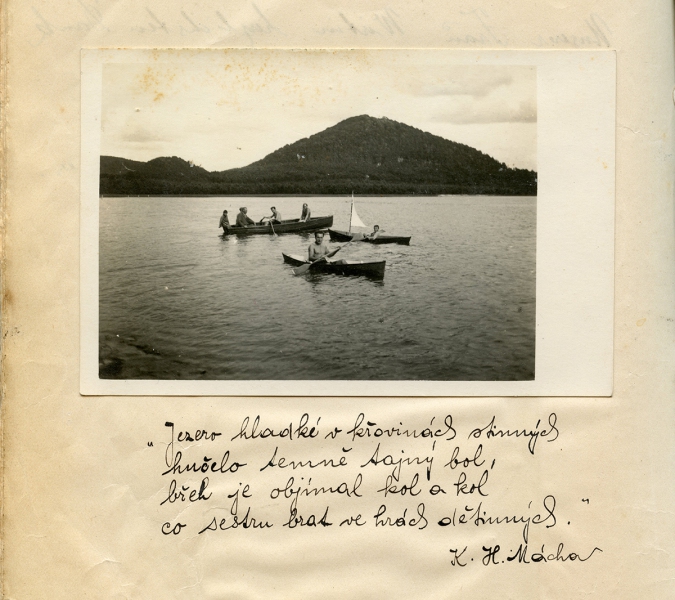 „Jezero hladké v křovinách stinných
hučelo temně tajný bol,
břeh je objímal kol a kol
co sestru brat ve hrách dětinných.“
K. H. Mácha